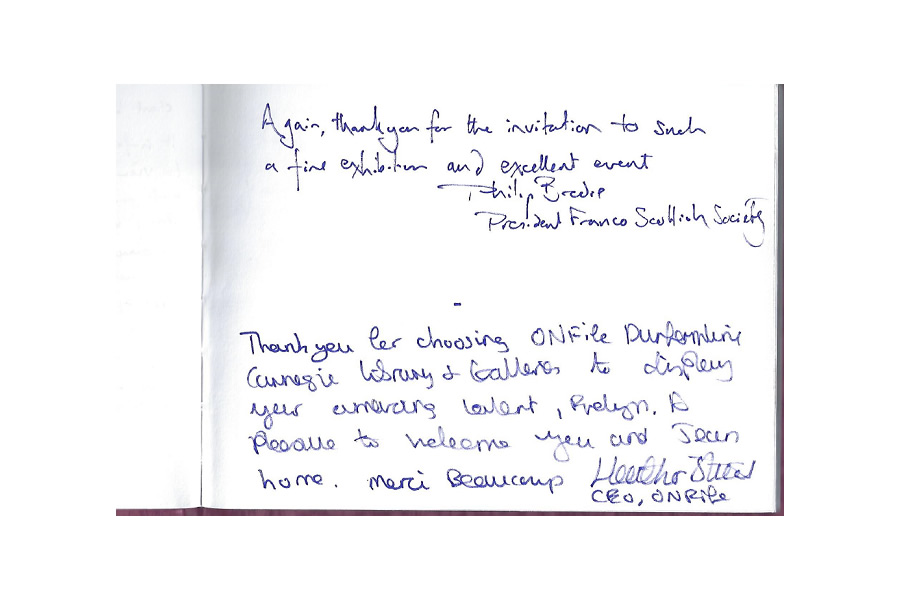 Again, thank you for the invitation to such
a fine exhibition and excellent event
Philip
President Franco Scottish Society
-
Thank you for choosing ONFife Dunfermline
Carnegie Library & Galleries to display
your amazing talent, Evelyn. A
pleasure to welcome you and Jean
home. Merci Beaucoup Heather
CEO, ONFife